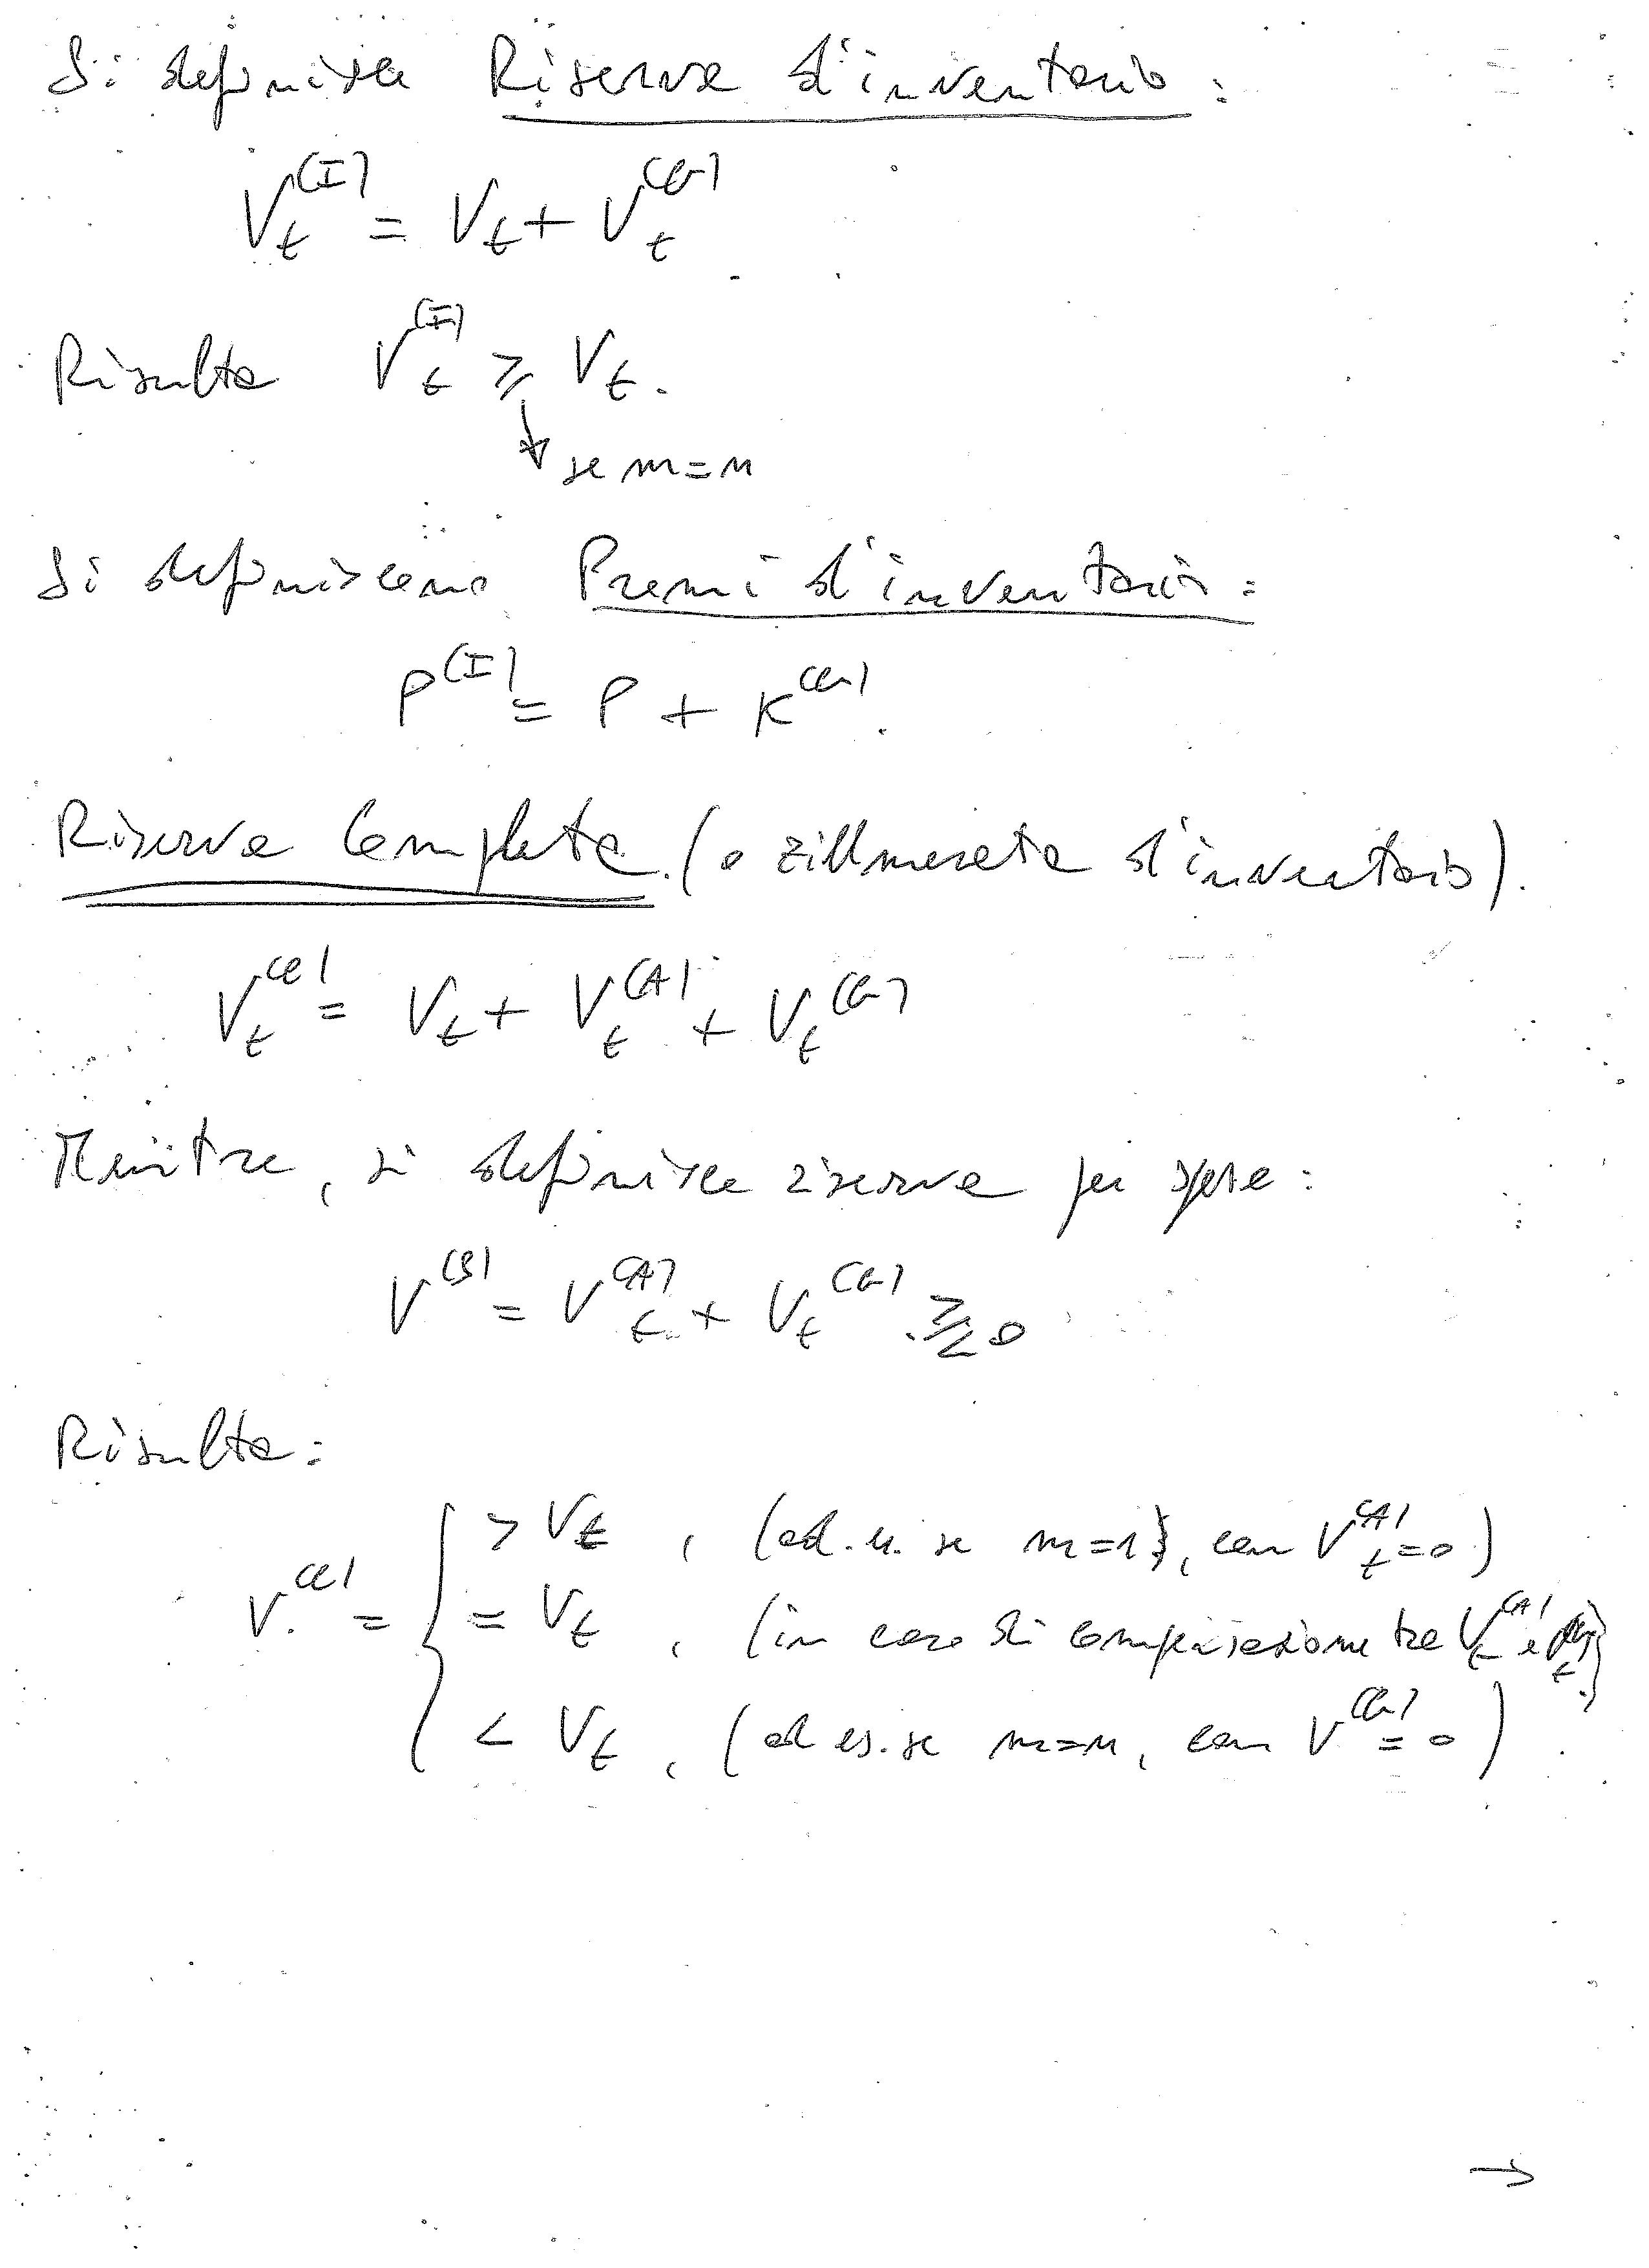 Si definisce Riserva d'inventario:
V_t^(I) = V_t + V_t^(G)
Risulta V_t^(I) ≥ V_t.
↓ se m=n
Si definiscono Premi d'inventario:
P^(I) = P + K^(G).
Riserva Completa (o zillmerata d'inventario).
V_t^(C) = V_t + V_t^(A) + V_t^(G)
Mentre, si definisce riserva per spese:
V^(S) = V_t^(A) + V_t^(G) ⋛ 0
Risulta:
V^(C) = { > V_t, (ad es. se m=1, con V_t^(A)=0)
= V_t, (in caso di compensazione tra V_t^(A) e V_t^(G))
< V_t, (ad es. se m=n, con V^(G)=0)
→